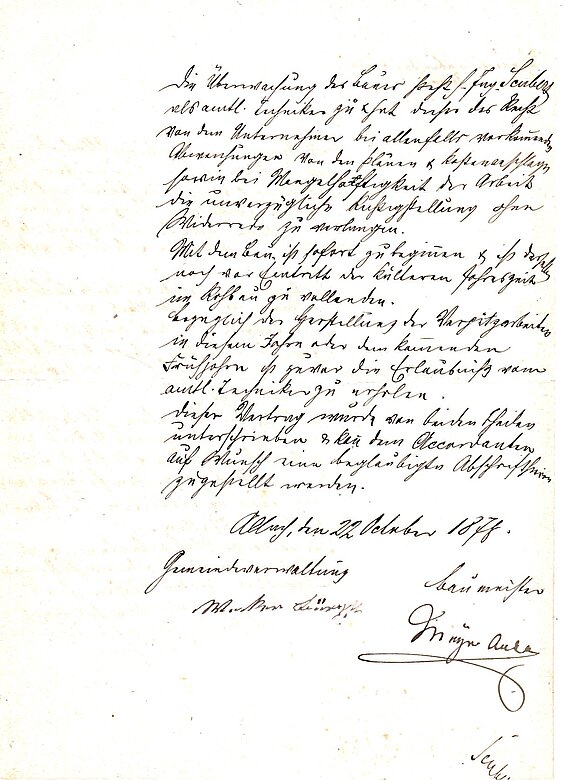 Die Überwachung des Baues steht H. Ing.
als amtl. Techniker zu & hat dieser das Recht
von dem Unternehmer bei allenfalls vorkommenden
Abweichungen von den Plänen & Kostenvoschlägen
sowie bei Mangelhaftigkeit der Arbeit
die unverzügliche Richtigstellung ohne
Widerrede zu verlangen.
Mit dem Bau ist sofort zu beginnen & ist derselbe
noch vor Eintritt der kälteren Jahreszeit
im Rohbau zu vollenden.
Bezüglich der Herstellung der Verputzarbeiten
in diesem Jahre oder dem kommenden
Frühjahre ist zuvor die Erlaubniß vom
amtl. Techniker zu erholen.
Dieser Vertrag wurde von beiden Theilen
unterschrieben & kan dem Accordanten
auf Wunsch eine beglaubigte Abschrift
zugestellt werden.
Allach, den 22 October 1878.
Gemeindeverwaltung
Baumeister